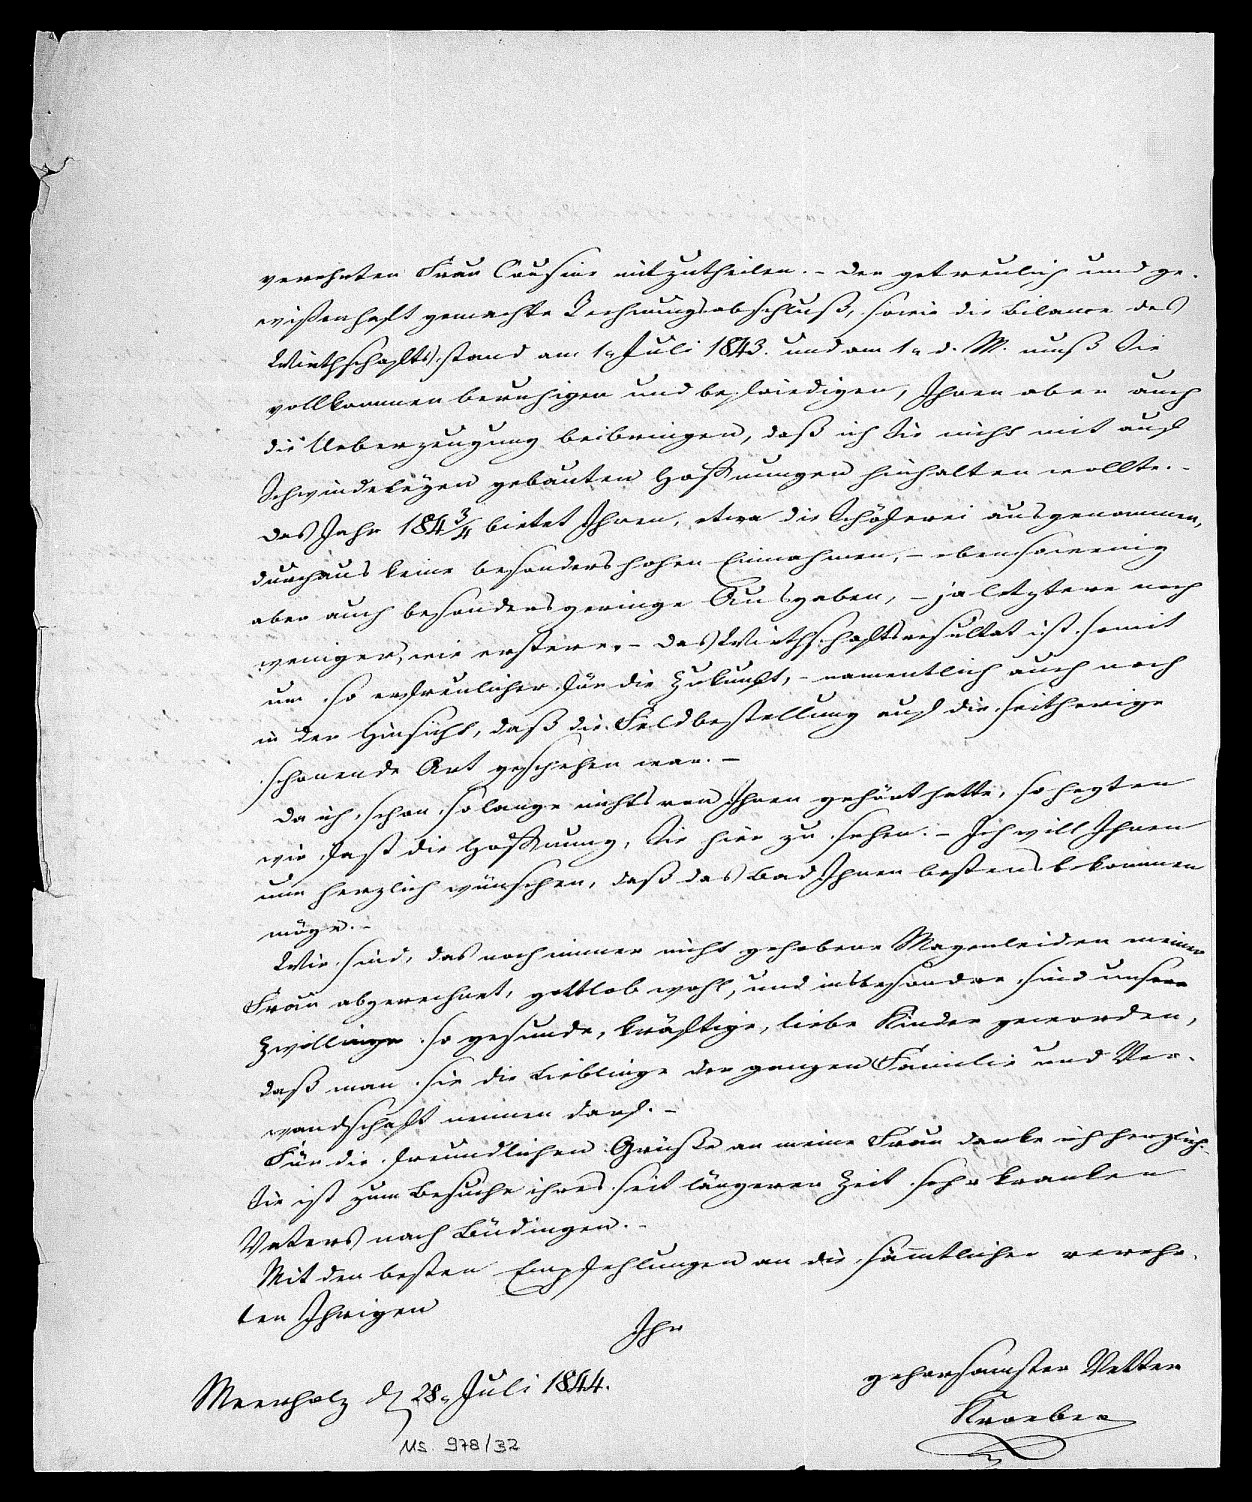 verehrten Frau Cousine mitzutheilen. – Der getreulich und ge-
wißenhaft gemachte Rechnungsabschluß, sowie die Bilance des
Wirthschafts-stand am 1n Juli 1843. und am 1n d. M. muß Sie
vollkommen beruhigen und befriedigen, Ihnen aber auch
die Ueberzeugung beibringen, daß ich Sie nicht mit auf
Schwindeleyen gebauten Hoffnungen hinhalten wollte. –
Das Jahr 184¾ bietet Ihnen, etwa die Schäferei ausgenommen,
durchaus keine besonders hohen Einnahmen, – ebensowenig
aber auch besonders geringe Ausgaben, – ja letztere noch
weniger, wie erstere. – Das Wirthschaftsresultat ist somit
um so erfreulicher für die Zukunft, – namentlich auch noch
in der Hinsicht, daß die Feldbestellung auf die seitherige
schonende Art geschehen war. –
Da ich schon so lange nichts von Ihnen gehört hatte, so hegten
wir fast die Hoffnung, Sie hier zu sehen. – Ich will Ihnen
nun herzlich wünschen, daß das Bad Ihnen bestens bekommen
möge. –
Wir sind, das noch immer nicht gehobene Magenleiden meiner
Frau abgerechnet, gottlob wohl, und insbesondre sind unsere
Zwillinge so gesunde, kräftige, liebe Kinder geworden,
daß man sie die Lieblinge der ganzen Familie und Ver-
wandschaft nennen darf. –
Für die freundlichen Grüße an meine Frau danke ich herzlich.
Sie ist zum Besuche ihres seit längerer Zeit sehr kranken
Vaters nach Büdingen. –
Mit den besten Empfehlungen an die sämmtlichen verehr-
ten Ihrigen
Ihr
gehorsamster Vetter
Kroeber
Meerholz d. 28n Juli 1844.
Ms. 978/32